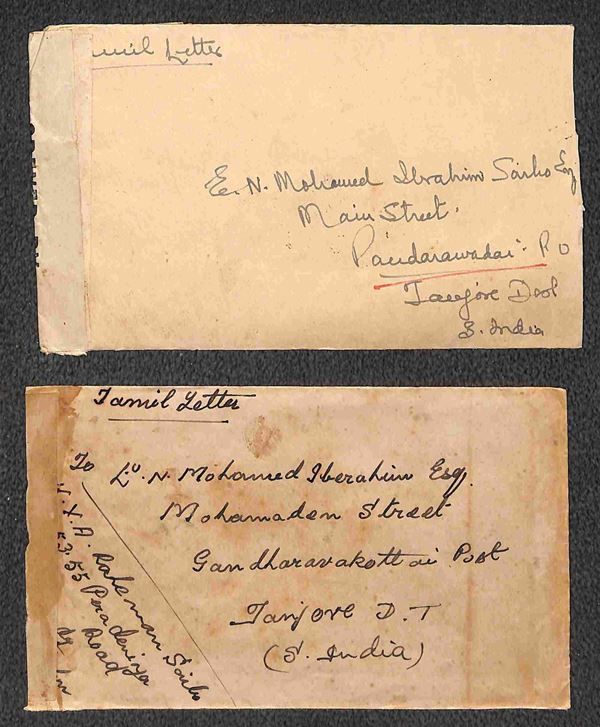 Tamil Letter
E. N. Mohamed Ibrahim Saibo Esq
Main Street.
Pandarawadai. P O
Tanjore Dist
S. India
Tamil Letter
To
N. Mohamed Iberahim Esq.
Mohamaden Street
Gandharavakottai Post
Tanjore D.T
(S. India)
A. Raheman Saibo
55 Peradeniya
Road